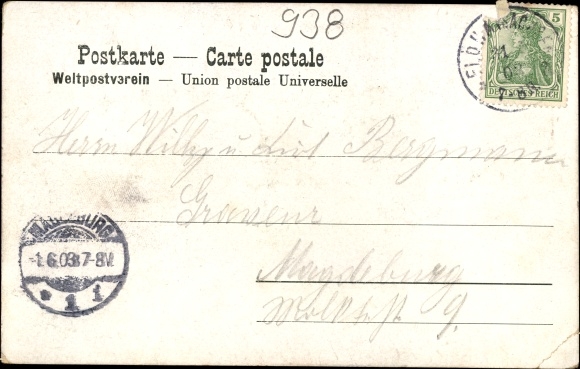 938
Postkarte — Carte postale
Weltpostverein — Union postale Universelle
5
DEUTSCHES REICH
Herrn Willy u Bergmann
Graveur
Magdeburg
MAGDEBURG
-1.6.03.7-8V.
* 1 1